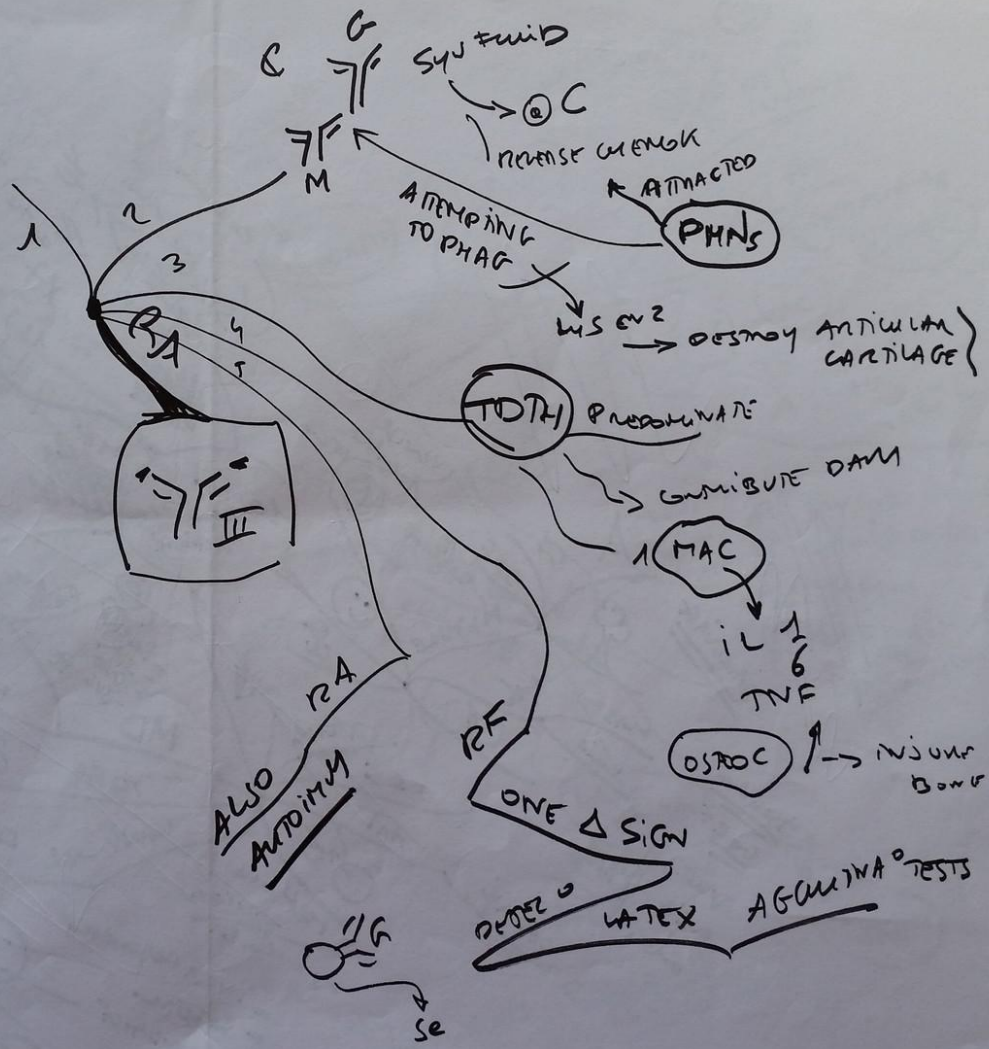 G
C
SYN FLUID
ⓐ C
M
REVERSE CHEMOK
ATTRACTED
PMNs
ATTEMPTING
TO PHAG
LYS ENZ
DESTROY ARTICULAR
CARTILAGE
1
2
3
4
5
RA
III
TDTH PREDOMINATE
CONTRIBUTE DAM
1 MAC
IL 1
6
TNF
OSTEOC
INJURE
BONE
RA
ALSO
AUTOIMM
RF
ONE Δ SIGN
DETEC°
LATEX
AGGLUTINA° TESTS
G
Se